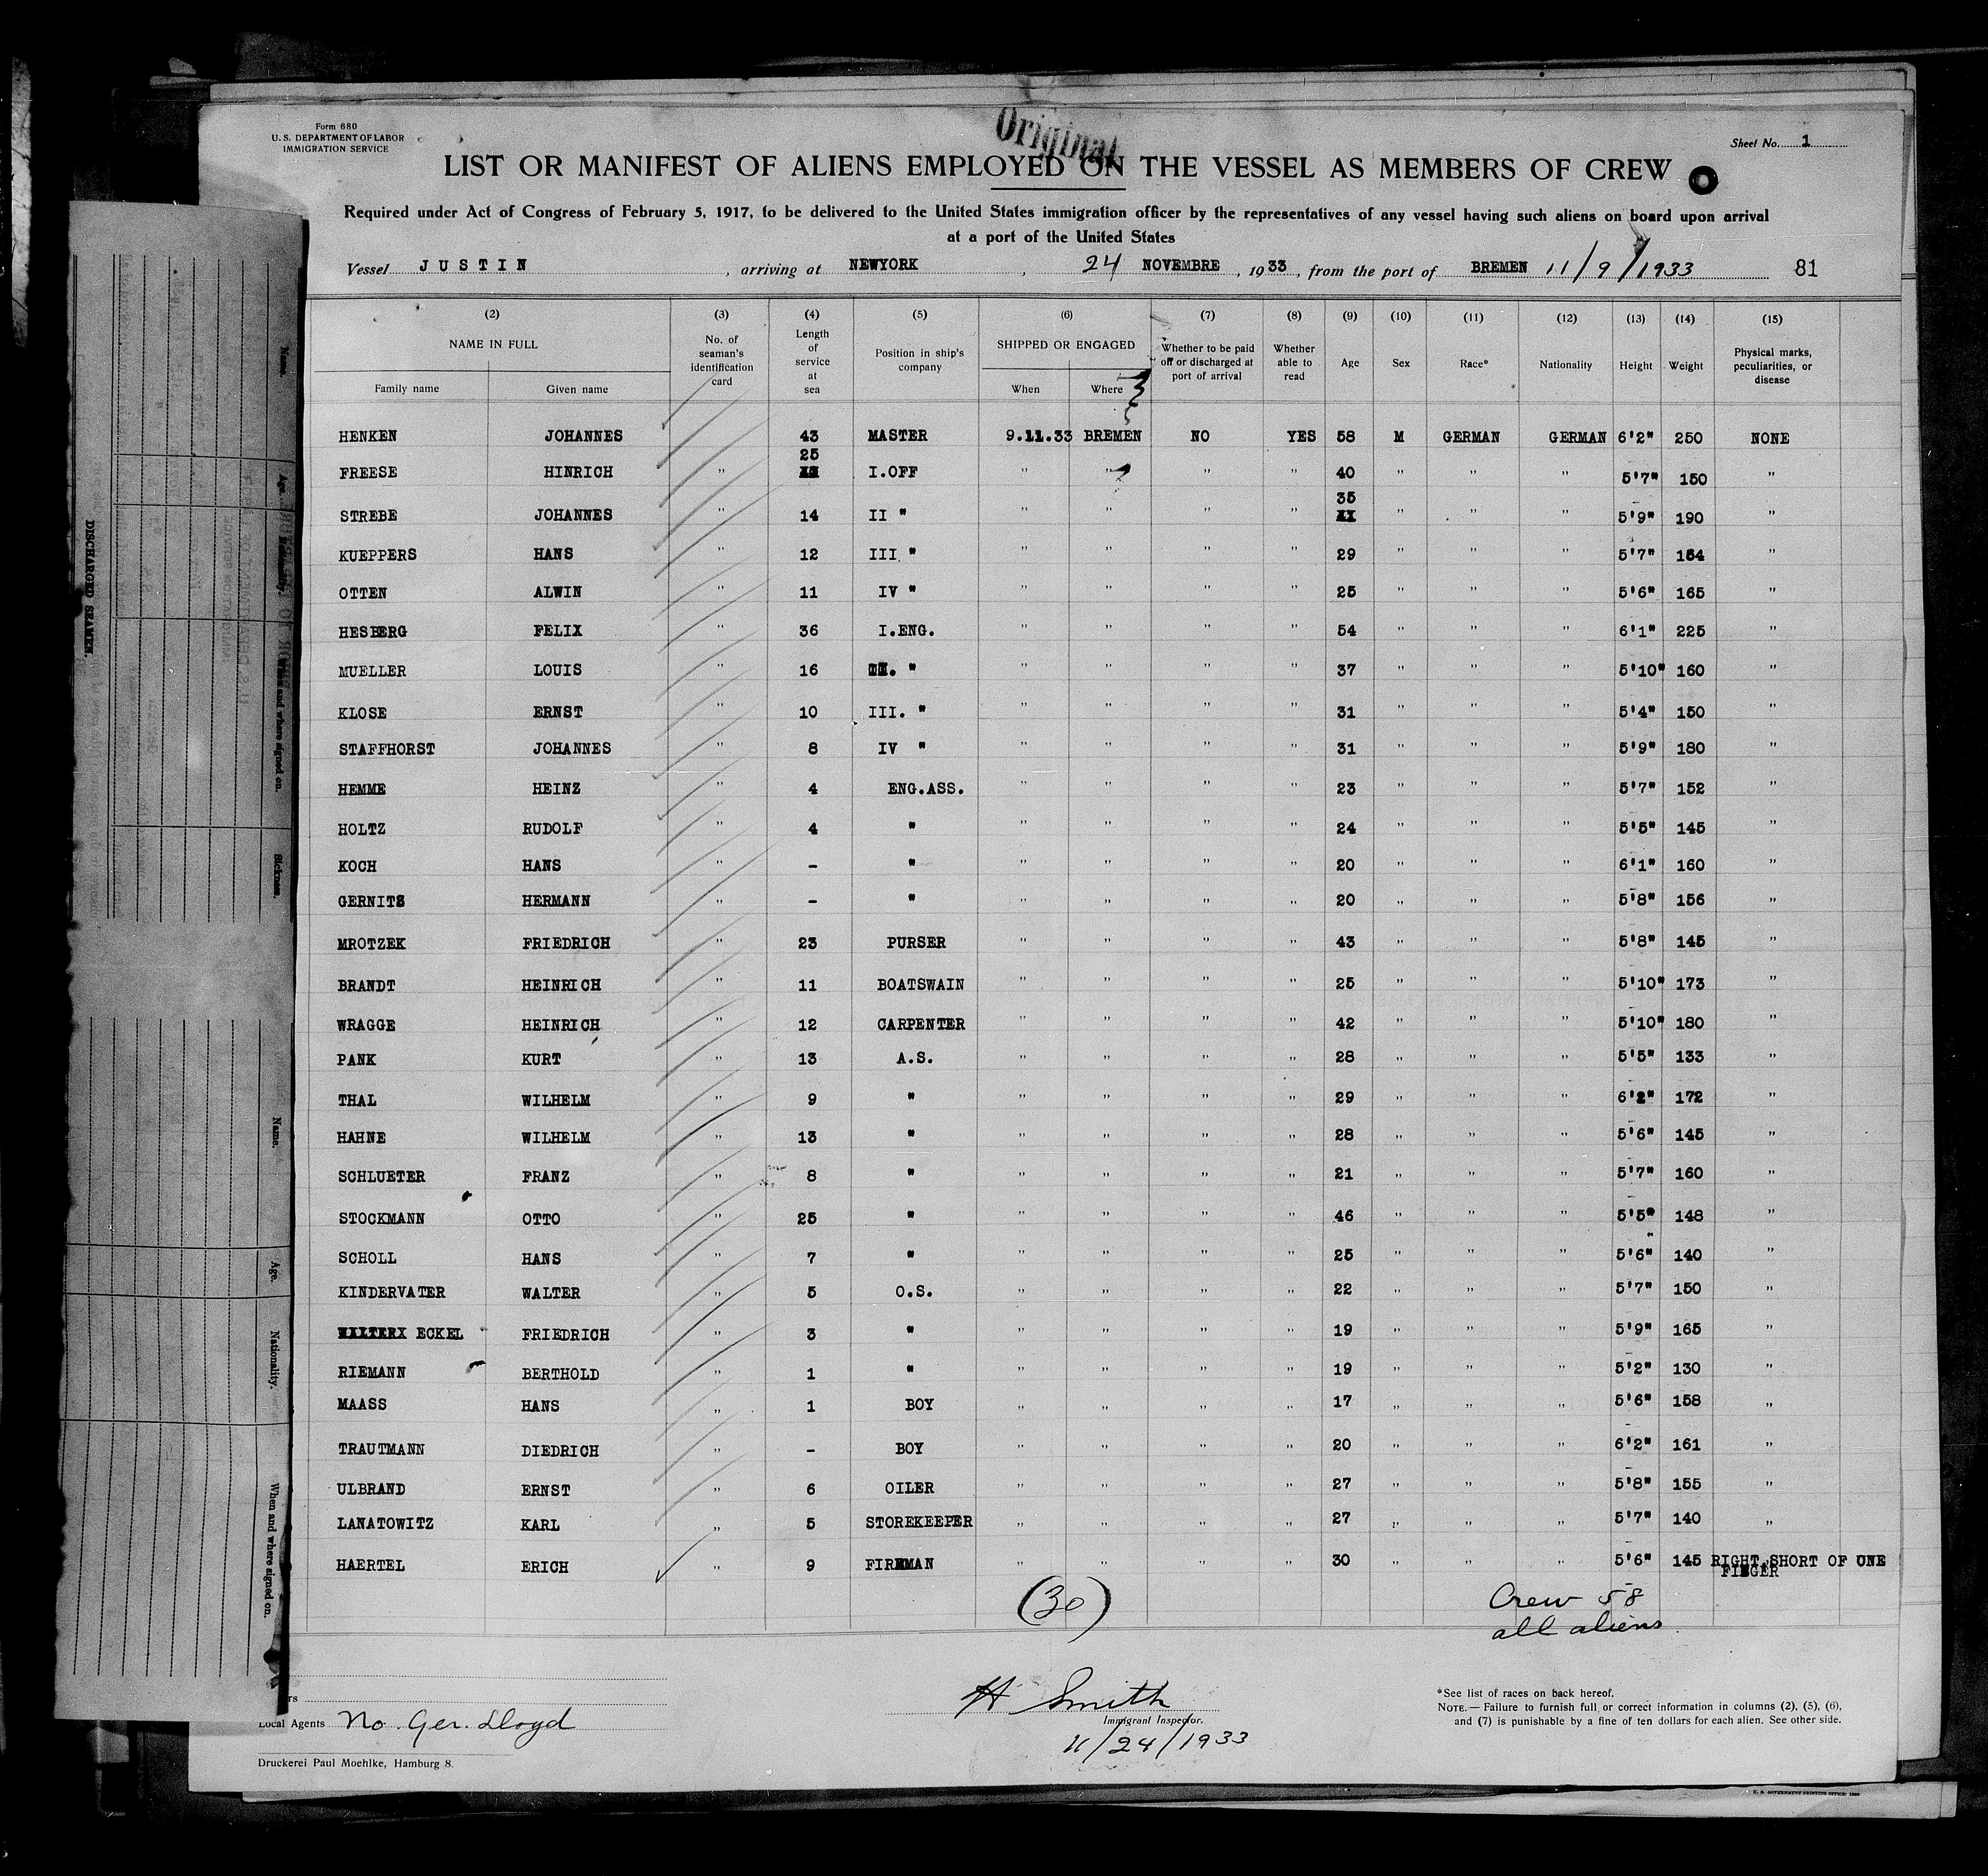 Form 680
U. S. DEPARTMENT OF LABOR
IMMIGRATION SERVICE
Original
Sheet No. 1
LIST OR MANIFEST OF ALIENS EMPLOYED ON THE VESSEL AS MEMBERS OF CREW
Required under Act of Congress of February 5, 1917, to be delivered to the United States immigration officer by the representatives of any vessel having such aliens on board upon arrival
at a port of the United States
Vessel JUSTIN, arriving at NEWYORK, 24 NOVEMBRE, 1933, from the port of BREMEN 11/9/1933 81
(2) (3) (4) (5) (6) (7) (8) (9) (10) (11) (12) (13) (14) (15)
NAME IN FULL No. of seaman's identification card Length of service at sea Position in ship's company SHIPPED OR ENGAGED Whether to be paid off or discharged at port of arrival Whether able to read Age Sex Race* Nationality Height Weight Physical marks, peculiarities, or disease
Family name Given name When Where
HENKEN JOHANNES 43 MASTER 9.11.33 BREMEN NO YES 58 M GERMAN GERMAN 6'2" 250 NONE
FREESE HINRICH " 25 I.OFF " " " " 40 " " " 5'7" 150 "
STREBE JOHANNES " 14 II " " " " " 35 " " " 5'9" 190 "
KUEPPERS HANS " 12 III " " " " " 29 " " " 5'7" 154 "
OTTEN ALWIN " 11 IV " " " " " 25 " " " 5'6" 165 "
HESBERG FELIX " 36 I.ENG. " " " " 54 " " " 6'1" 225 "
MUELLER LOUIS " 16 II. " " " " " 37 " " " 5'10" 160 "
KLOSE ERNST " 10 III. " " " " " 31 " " " 5'4" 150 "
STAFFHORST JOHANNES " 8 IV " " " " " 31 " " " 5'9" 180 "
HEMME HEINZ " 4 ENG.ASS. " " " " 23 " " " 5'7" 152 "
HOLTZ RUDOLF " 4 " " " " " 24 " " " 5'5" 145 "
KOCH HANS " - " " " " " 20 " " " 6'1" 160 "
GERNITS HERMANN " - " " " " " 20 " " " 5'8" 156 "
MROTZEK FRIEDRICH " 23 PURSER " " " " 43 " " " 5'8" 145 "
BRANDT HEINRICH " 11 BOATSWAIN " " " " 25 " " " 5'10" 173 "
WRAGGE HEINRICH " 12 CARPENTER " " " " 42 " " " 5'10" 180 "
PANK KURT " 13 A.S. " " " " 28 " " " 5'5" 133 "
THAL WILHELM " 9 " " " " " 29 " " " 6'2" 172 "
HAHNE WILHELM " 13 " " " " " 28 " " " 5'6" 145 "
SCHLUETER FRANZ " 8 " " " " " 21 " " " 5'7" 160 "
STOCKMANN OTTO " 25 " " " " " 46 " " " 5'5" 148 "
SCHOLL HANS " 7 " " " " " 25 " " " 5'6" 140 "
KINDERVATER WALTER " 5 O.S. " " " " 22 " " " 5'7" 150 "
ECKEL FRIEDRICH " 3 " " " " " 19 " " " 5'9" 165 "
RIEMANN BERTHOLD " 1 " " " " " 19 " " " 5'2" 130 "
MAASS HANS " 1 BOY " " " " 17 " " " 5'6" 158 "
TRAUTMANN DIEDRICH " - BOY " " " " 20 " " " 6'2" 161 "
ULBRAND ERNST " 6 OILER " " " " 27 " " " 5'8" 155 "
LANATOWITZ KARL " 5 STOREKEEPER " " " " 27 " " " 5'7" 140 "
HAERTEL ERICH " 9 FIREMAN " " " " 30 " " " 5'6" 145 RIGHT SHORT OF ONE FINGER
(30)
Crew 58
all aliens
H Smith
Immigrant Inspector.
11/24/1933
Local Agents No. Ger. Lloyd
Druckerei Paul Moehlke, Hamburg 8.
*See list of races on back hereof.
NOTE.—Failure to furnish full or correct information in columns (2), (5), (6),
and (7) is punishable by a fine of ten dollars for each alien. See other side.
DISCHARGED SEAMEN.
Name.
Age.
Nationality.
When and where signed on.
Sickness.
Name.
Age.
Nationality.
When and where signed on.